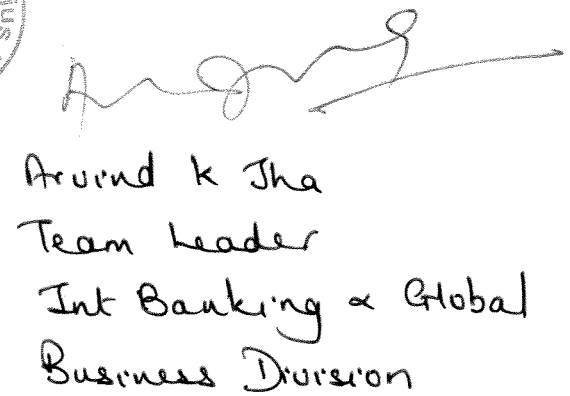 ius
Arvind K Jha
Team Leader
Int Banking & Global
Business Division